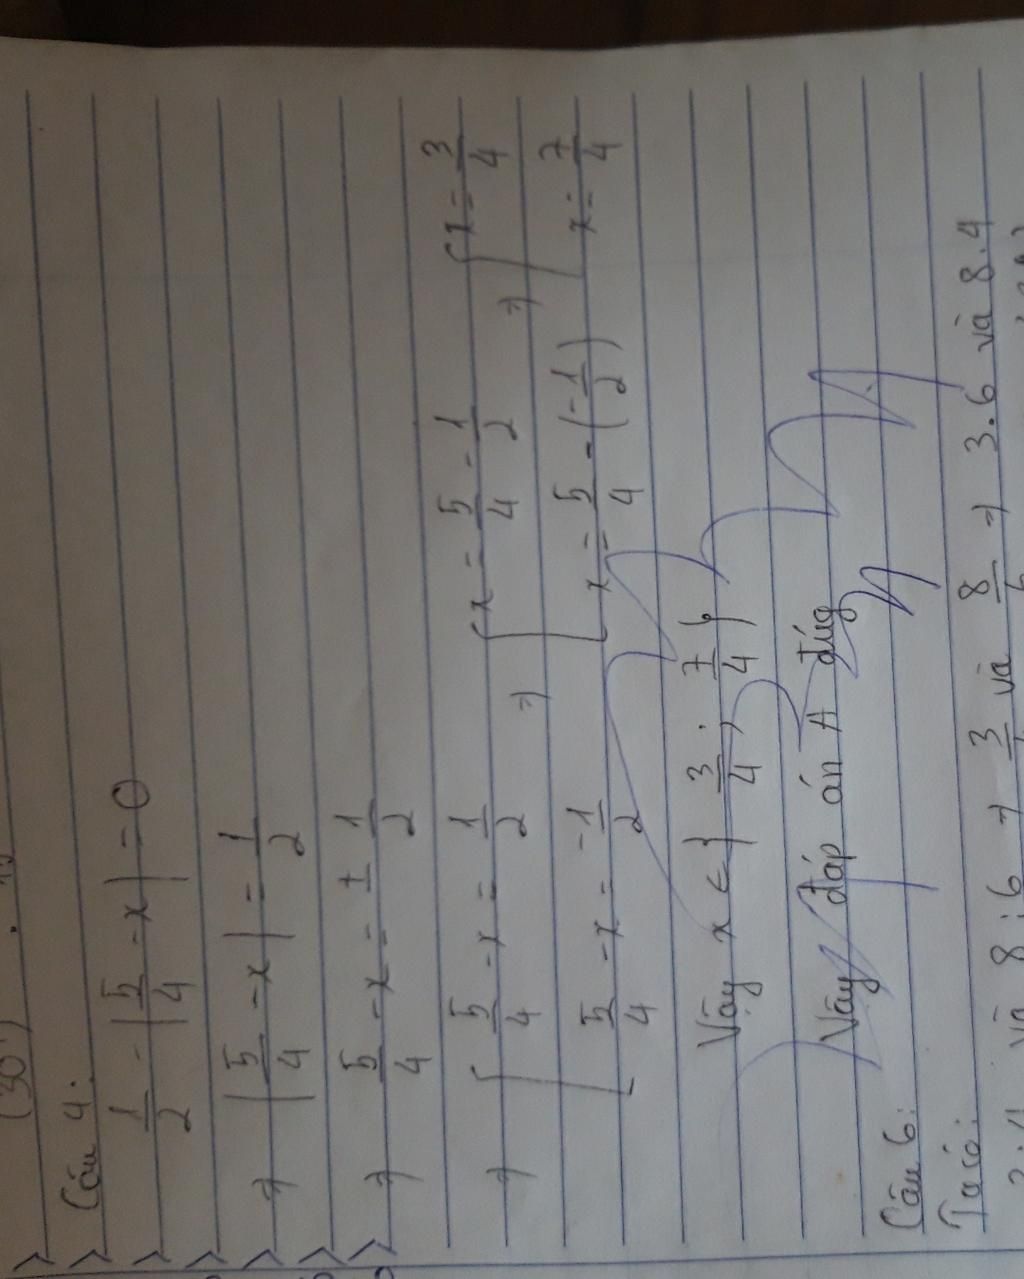 (30
Câu 4:
1/2 - |5/4 - x| = 0
⇒ |5/4 - x| = 1/2
⇒ 5/4 - x = ± 1/2
⇒ [ 5/4 - x = 1/2 ⇒ [ x = 5/4 - 1/2 ⇒ [ x = 3/4
[ 5/4 - x = -1/2 [ x = 5/4 - (-1/2) [ x = 7/4
Vậy x ∈ { 3/4 ; 7/4 }
Vậy đáp án A đúg
Câu 6:
Ta có: 3/ và 8/ ⇒ 3.6 và 8.4
và 8:6 ⇒